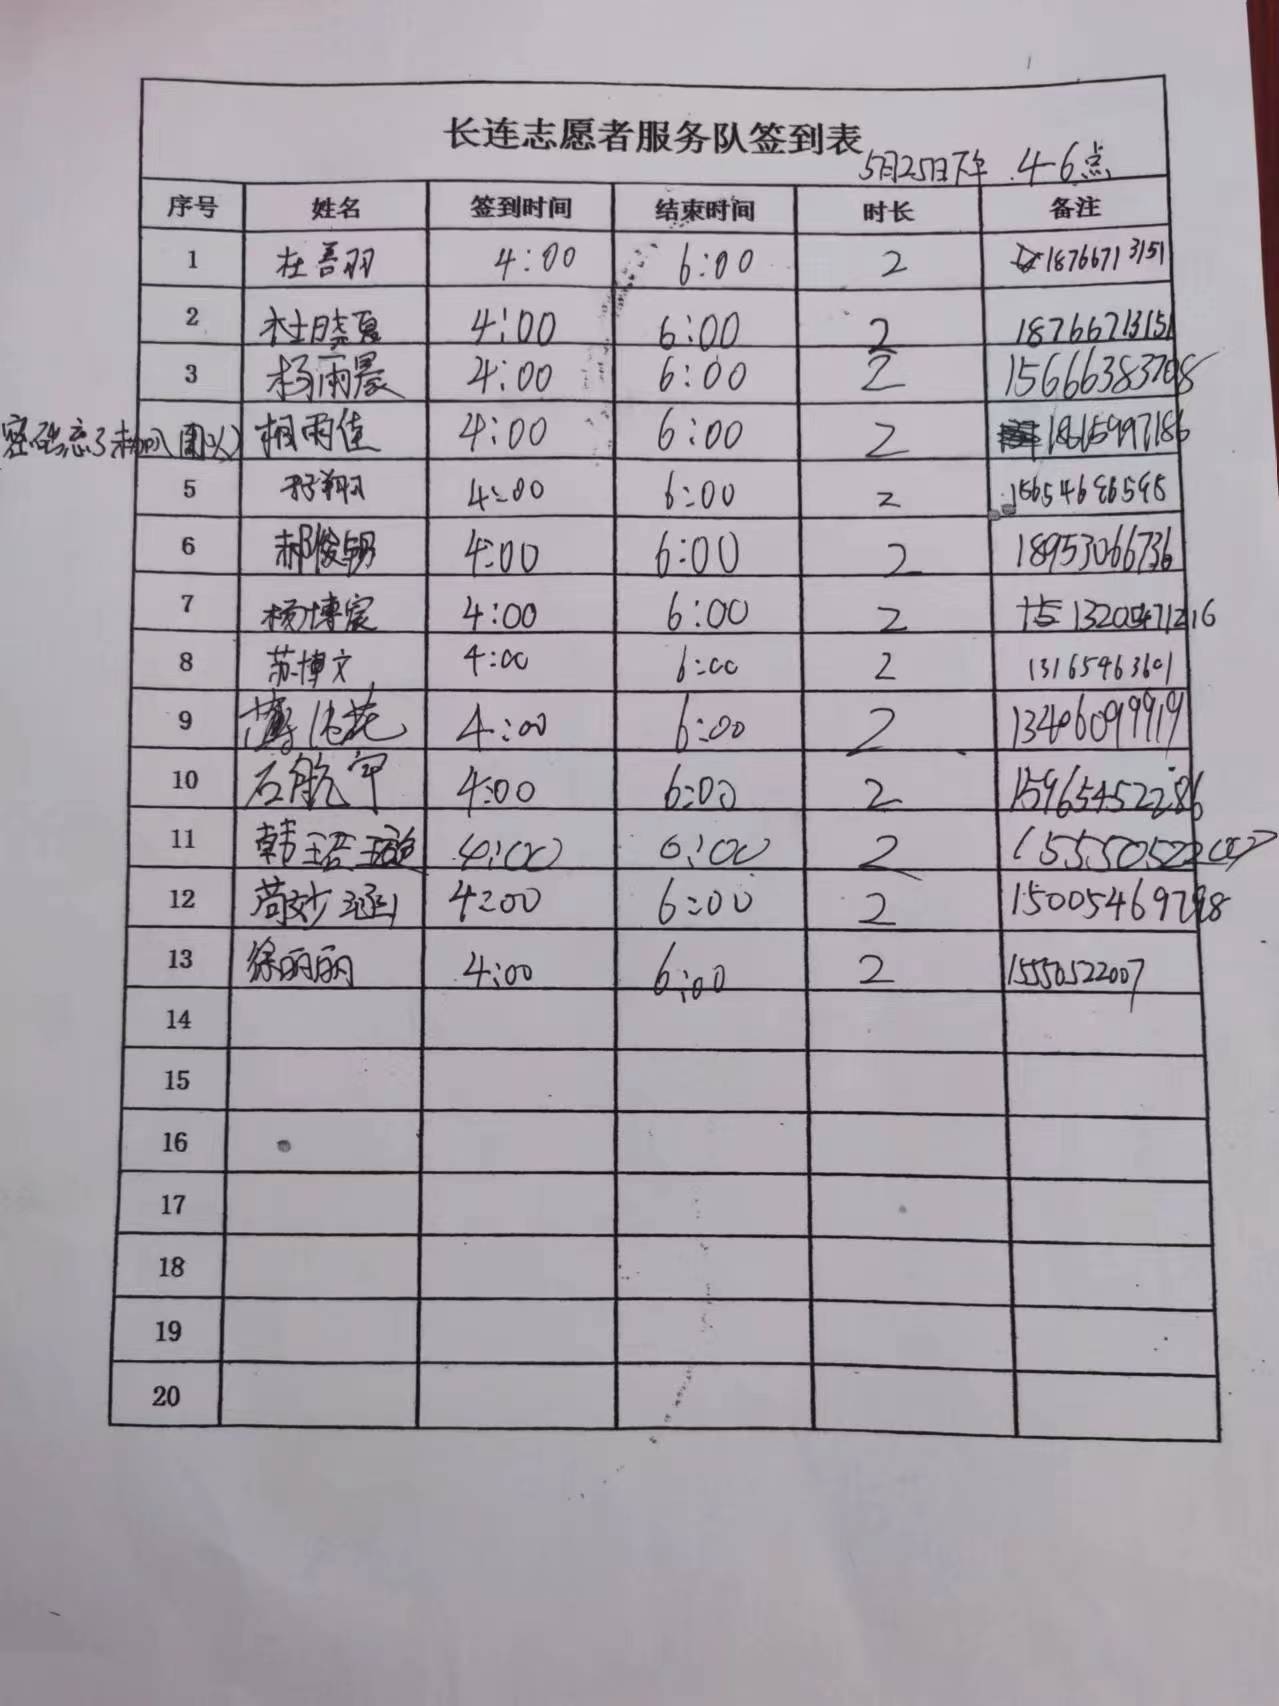 长连志愿者服务队签到表
5月25日下午 4-6点
序号 姓名 签到时间 结束时间 时长 备注
1 杜善羽 4:00 6:00 2 18766713151
2 杜晓夏 4:00 6:00 2 18766713151
3 杨雨晨 4:00 6:00 2 15666383708
密码忘了未加入团队 相雨佳 4:00 6:00 2 18615997186
5 4:00 6:00 2
6 郝俊朗 4:00 6:00 2 18953066736
7 杨博宸 4:00 6:00 2 13205471216
8 苏博文 4:00 6:00 2 13165463601
9 4:00 6:00 2 13406099919
10 石航宇 4:00 6:00 2 15965452286
11 韩语璇 4:00 6:00 2 15550522007
12 苟妙涵 4:00 6:00 2 15005469798
13 徐丽丽 4:00 6:00 2 15550522007
14
15
16
17
18
19
20